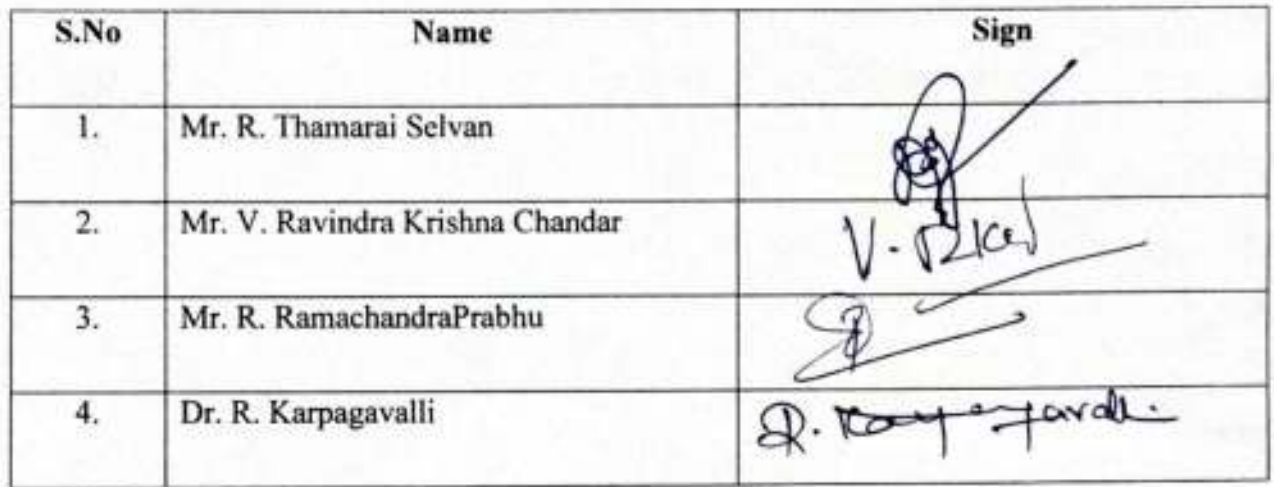 S.No Name Sign
1. Mr. R. Thamarai Selvan
2. Mr. V. Ravindra Krishna Chandar
V.
3. Mr. R. RamachandraPrabhu
4. Dr. R. Karpagavalli
R. Karpagavalli